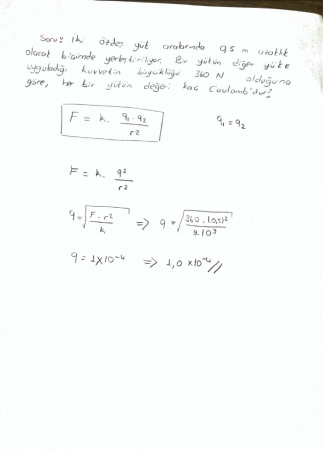 Soru: İki özdeş yük aralarında 0,5 m uzaklık
olacak biçimde yerleştiriliyor. Bir yükün diğer yüke
uyguladığı kuvvetin büyüklüğü 360 N olduğuna
göre, her bir yükün değeri kaç Coulomb'dur?
F = k. q₁.q₂ / r²
q₁ = q₂
F = k. q² / r²
q = √(F.r² / k) => q = √(360.(0,5)² / 9.10⁹)
q = 1x10⁻⁴ => 1,0 x10⁻⁴//